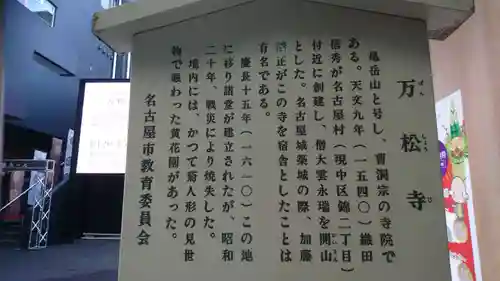 万松寺
ばんしょうじ
亀岳山と号し、曹洞宗の寺院で
ある。天文九年(一五四〇)織田
信秀が名古屋村(現中区錦二丁目)
付近に創建し、僧大雲永瑞を開山
とした。名古屋城築城の際、加藤
清正がこの寺を宿舎としたことは
有名である。
慶長十五年(一六一〇)この地
に移り諸堂が建立されたが、昭和
二十年、戦災により焼失した。
境内には、かつて菊人形の見世
物で賑わった黄花園があった。
名古屋市教育委員会